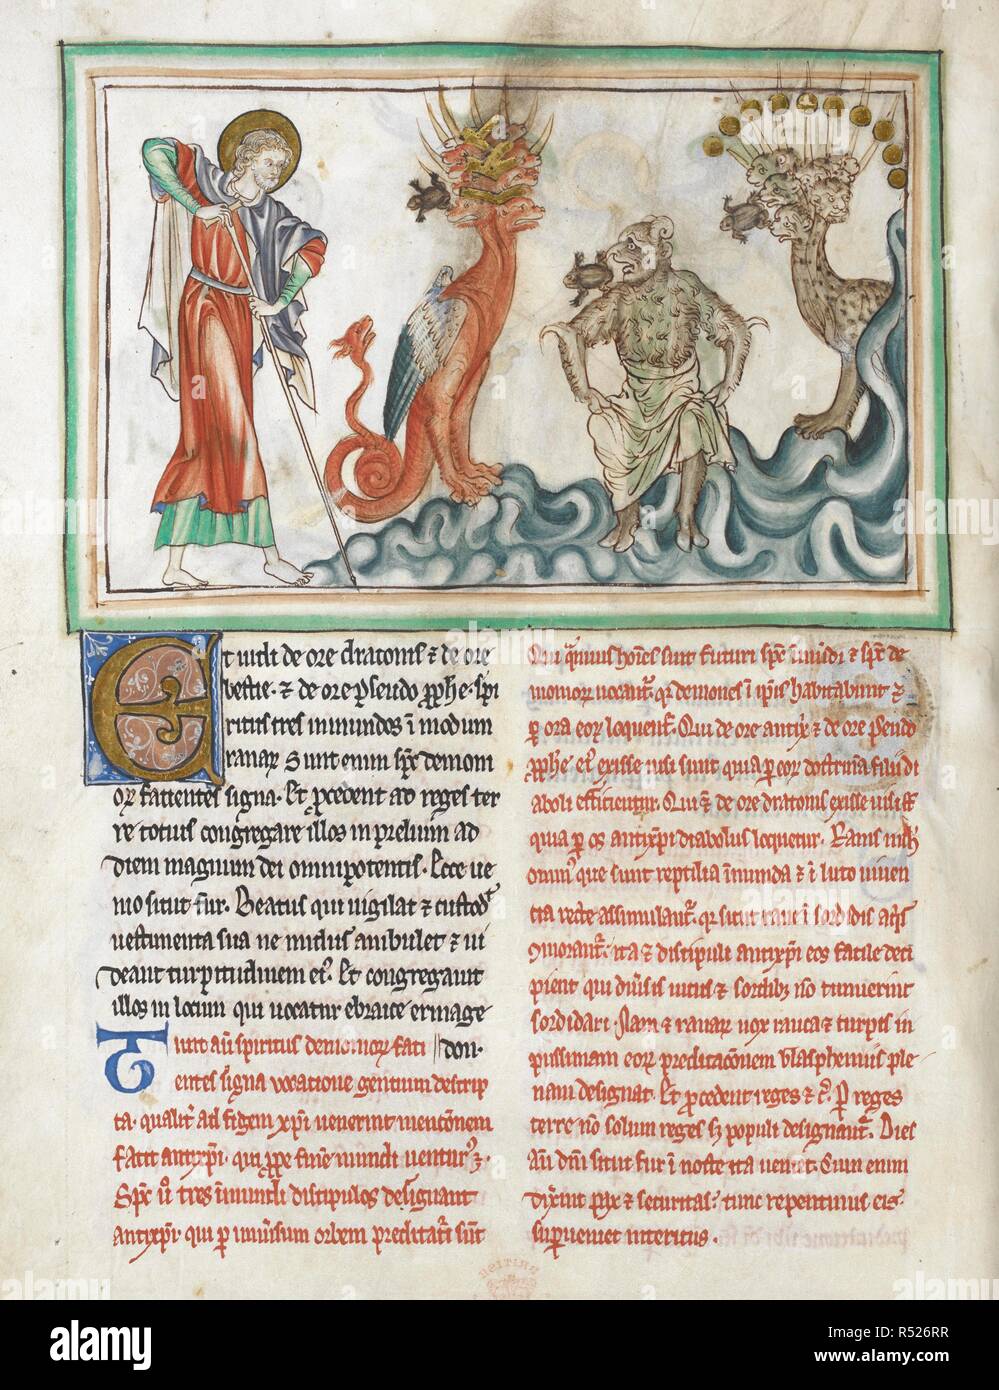 Et uidi de ore draconis & de ore
bestie · & de ore pseudo pphe · spi
ritus tres inmundos i modum
ranar Sunt enim spc demon
or facientes signa · Et pcedent ad reges ter
re totius congregare illos in prelium ad
diem magnum dei omnipotentis · Ecce ue
nio sicut fur · Beatus qui uigilat & custod
uestimenta sua ne nudus ambulet & ui
deant turpitudinem ei · Et congregauit
illos in locum qui uocatur ebraice ermage
don ·
Uiut au spiritus demonior faci
entes signa uocatione gentium descrip
ta · qualit ad fidem xpi uenerint mentionem
facit antixpi · qui ppe finem mundi uentur ·
Spc u tres inmundi discipulos designant
antixpi · qui p uniusum orbem predicati sunt
Qui quis hoies sint futuri spc inmundi & spc de
monior uocant qr demones i ipis habitabunt &
p ora eor loquent · Qui de ore antixp & de ore pseudo
pphe exisse uisi sunt quia p eor doctrina
aboli efficientur · Qui de ore draconis exisse uisi
quia p os antixpi diabolus loquetur · Ranis
que sunt reptilia inmunda & i luto uiuen
tia recte assimulant · qr sicut rane i sordidis aqis
morant · ita & discipuli antixpi eos facile deci
pient qui diuisis uiciis & sordib no timuerint
sordidari · Nam & ranar uox rauca & turpis in
pissimam eor predicationem blasphemiis ple
nam designat · Et pcedent reges & c · P reges
terre no solum reges s populi designant · Dies
au dni sicut fur i nocte ita ueniet · Cum enim
dixint pax & securitas · tunc repentinus eis
superueniet interitus ·
alamy
Image ID: R526RR
www.alamy.com